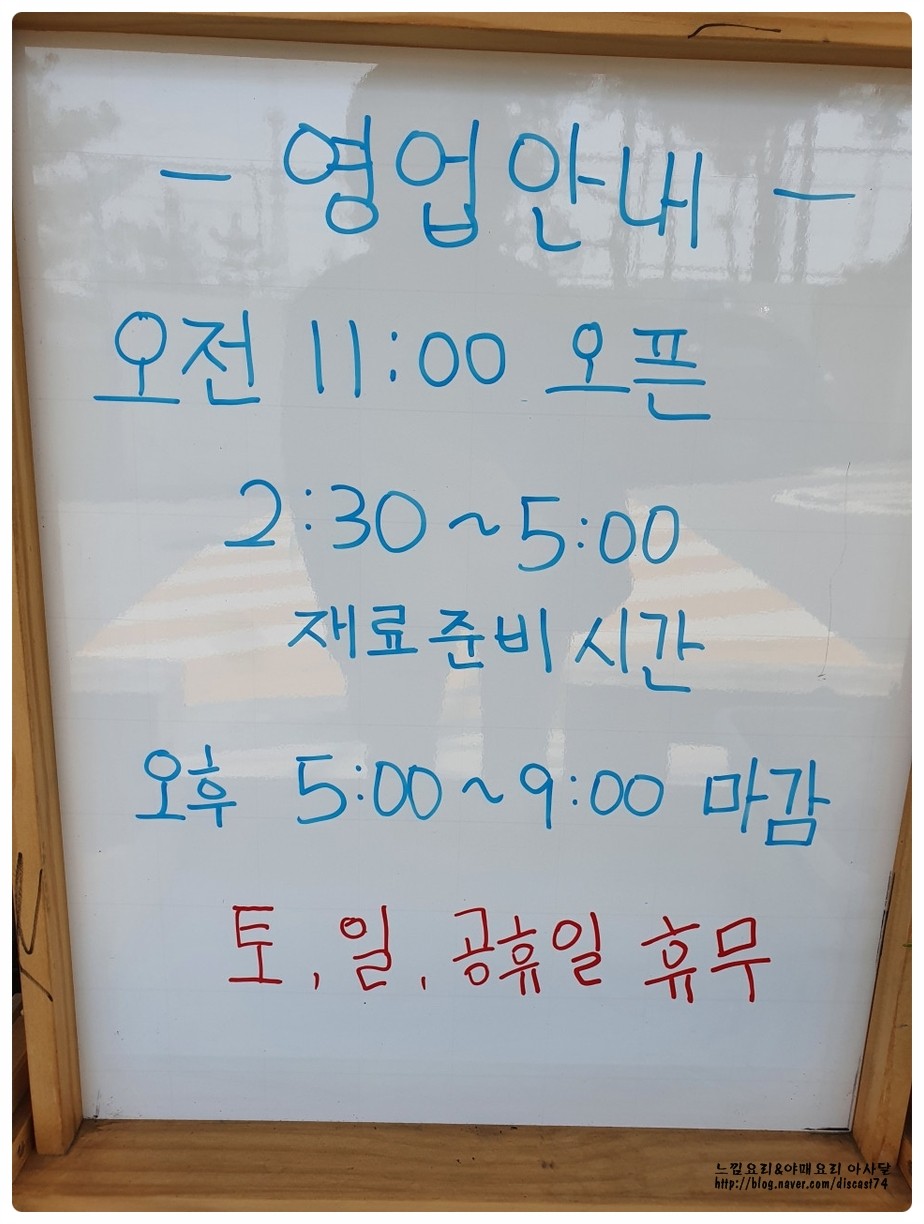 - 영업안내 -
오전 11:00 오픈
2:30~5:00
재료준비시간
오후 5:00~9:00 마감
토, 일, 공휴일 휴무
느낌요리&야매요리 아사달
http://blog.naver.com/discast74